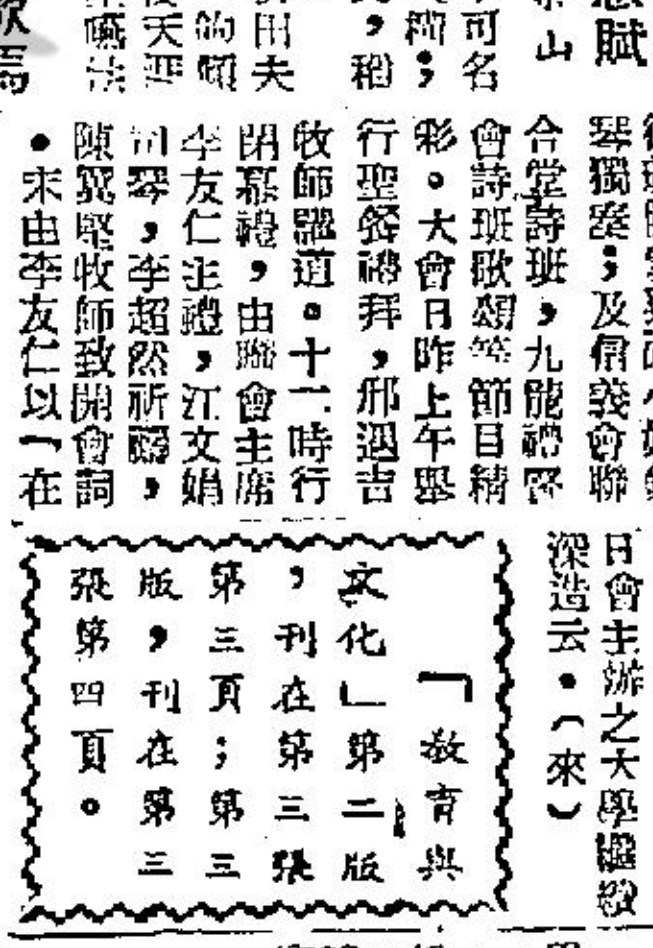 賦
山
可名
，稍
田夫
天
琴獨奏；及信義會聯
合堂詩班，九龍禮堂
會詩班歌頌等節目精
彩。大會日昨上午舉
行聖餐禮拜，邢遇吉
牧師證道。十一時行
閉幕禮，由聯會主席
李友仁主禮，江文娟
司琴，李超然祈禱，
陳翼堅牧師致開會詞
•末由李友仁以「在
日會主辦之大學繼續
深造云•（來）
「教育與
文化」第二版
，刊在第三張
第三頁；第三
版，刊在第三
張第四頁。